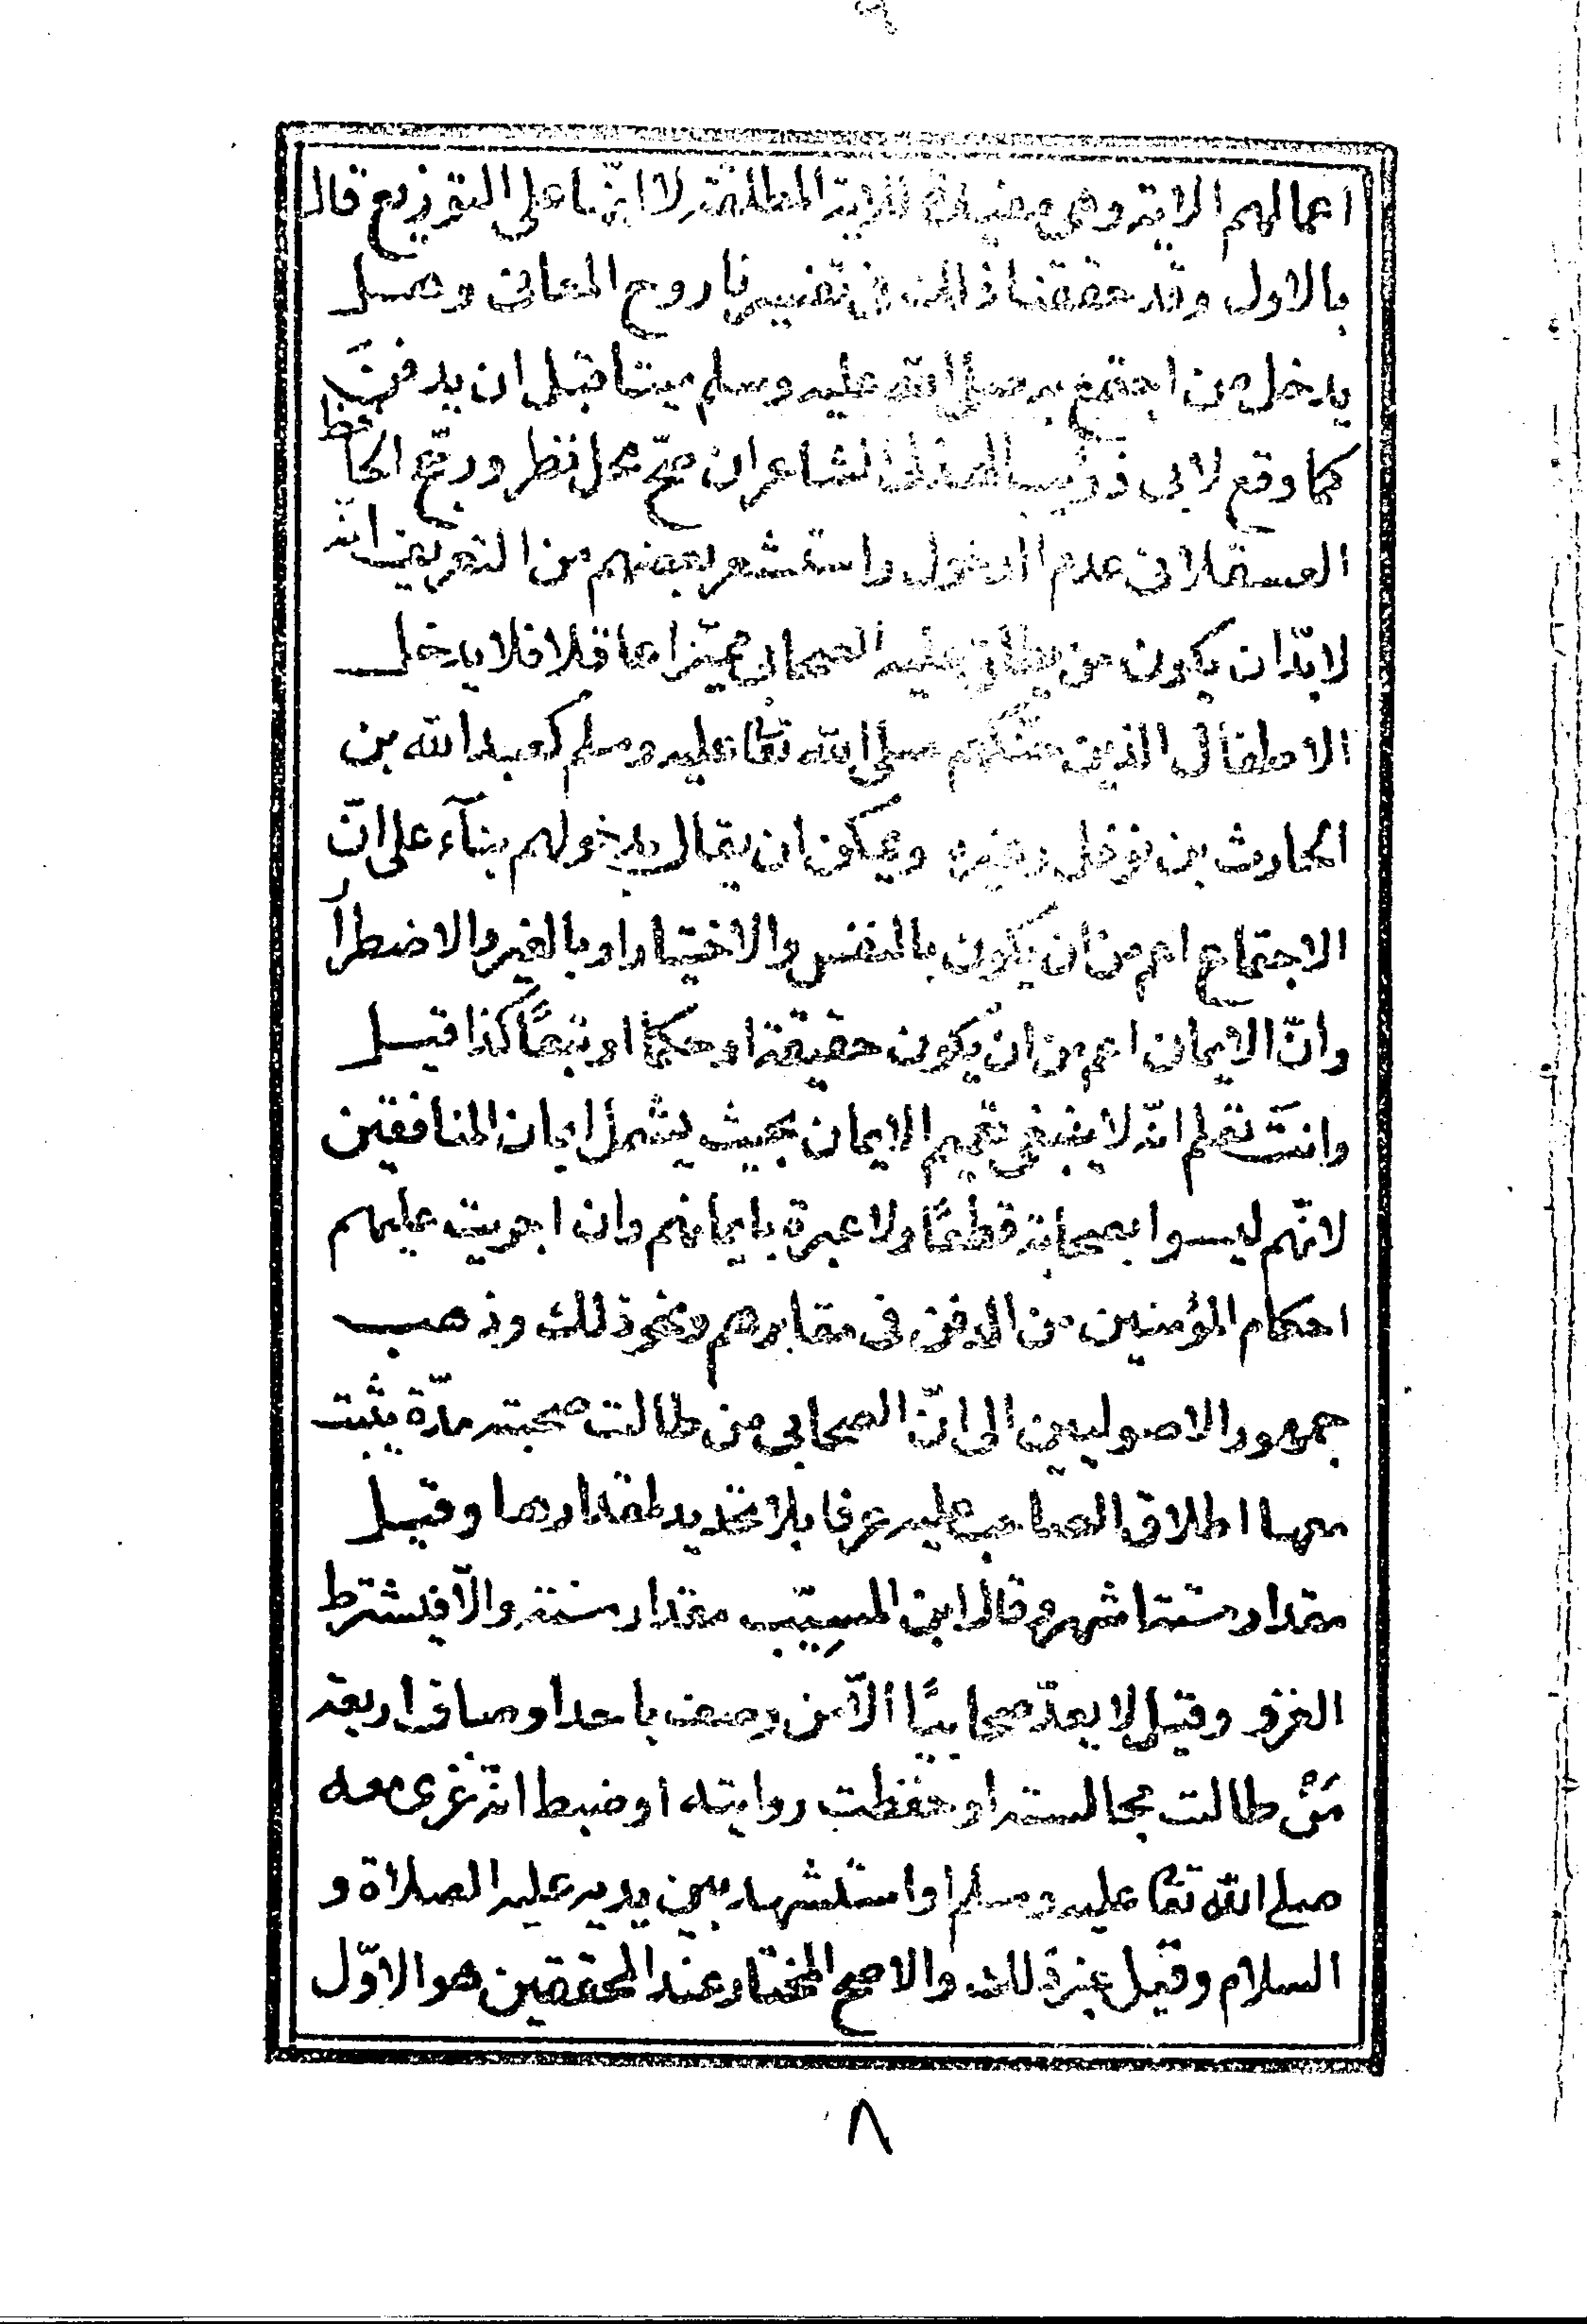 اعمالهم الاية وهى مقيدة للاية المطلقة لا انها على التوزيع قال
بالاول وقد حققنا ذلك فى تفسيرنا روح المعانى وهل
يدخل من اجتمع به صلى الله عليه وسلم ميتا قبل ان يدفن
كما وقع لابى ذؤيب الهذلى الشاعر ان صحّ محل نظر ورجّح الحافظ
العسقلانى عدم الدخول واستشعر بعضهم من التعريف انّه
لابدّ ان يكون من يطلق عليه الصحابى مميّزا عاقلا فلا يدخل
الاطفال الذين حنّكهم صلى الله تعا عليه وسلم كعبد الله بن
الحارث بن نوفل وغيره ويمكن ان يقال بدخولهم بنآء على انّ
الاجتماع اعم من ان يكون بالنفس والاختيار او بالغير والاضطرار
وانّ الايمان اعم من ان يكون حقيقة او حكما او تبعًا كذا قيل
وانت تعلم انّه لا ينبغى تعميم الايمان بحيث يشمل ايمان المنافقين
لانّهم ليسوا بصحابة قطعًا ولا عبرة بايمانهم وان اجريت عليهم
احكام المؤمنين من الدفن فى مقابرهم ونحو ذلك وذهب
جمهور الاصوليين الى انّ الصحابى من طالت صحبته مدّة يثبت
معها اطلاق الصاحب عليه عرفا بلا تحديد لمقدارها وقيل
مقدار ستة اشهر وقال ابن المسيّب مقدار سنة والّا فيشترط
الغزو وقيل لا يعدّ صحابيًا الّا من وصف باحد اوصاف اربعة
مَنْ طالت مجالسته او حفظت روايته او ضبط انّه غزى معه
صلى الله تعا عليه وسلم او استشهد بين يديه عليه الصلاة و
السلام وقيل غير ذلك والاصح المختار عند المحققين هو الاوّل
٨